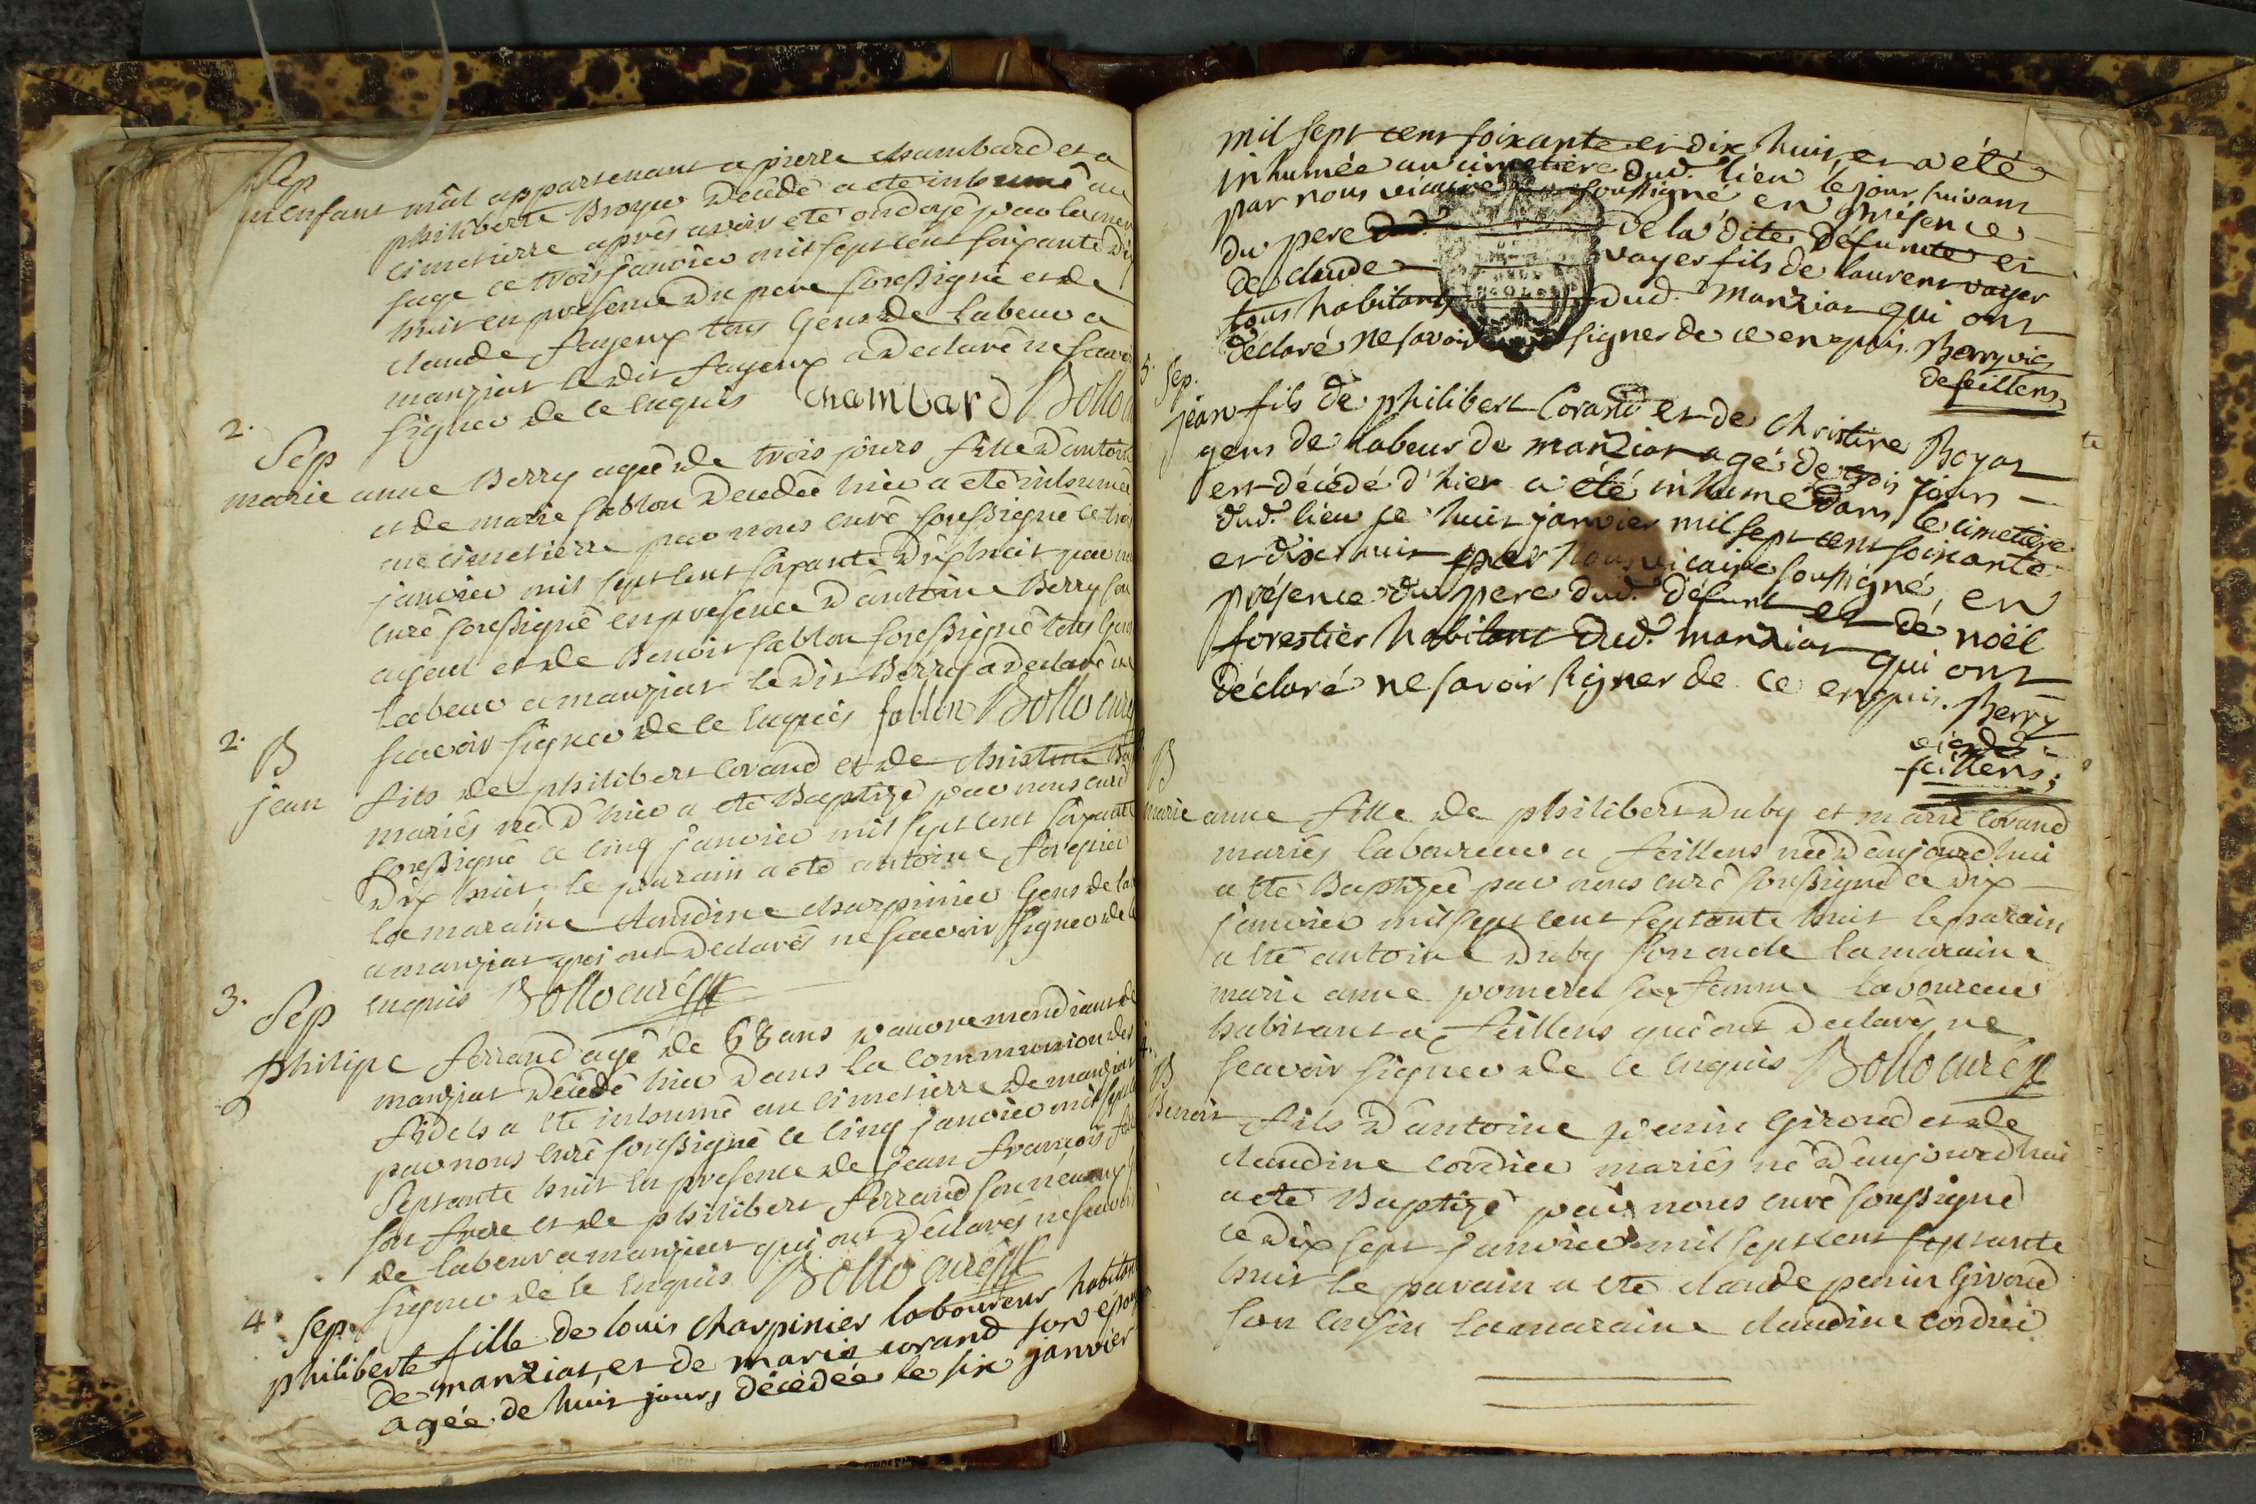 Sep
un enfant mâl appartenant a pierre chambard et a
philiberte Broyer decedé a eté inhumé au
cimetierre aprês avoir eté ondoyé par la
sage ce trois janvier mil sept cent soixante dix
huit en presence du pere soussigné et de
claude fayeux tous Gens de labeur a
manziat le dit fayeux a declaré ne scavoir
signer de ce enquis Chambard Bollo
2.
Sep
marie anne Berry agée de trois jours fille d'antoine
et de marie sablon decedée hier a eté inhumée
au cimetierre par nous curé soussigné ce trois
janvier mil sept cent soixante dixhuit par
curé soussigné en presence d'antoine Berry son
ayeul et de Benoit sablon soussigné tous Gens
labeur a manziat le dit Berry a declaré ne
scavoir signer de ce enquis sablon Bollo curé
2.
B
jean fils de philibert Corand et de christine
mariés né d'hier a eté Baptizé par nous curé
soussigné ce cinq janvier mil sept cent soixante
dix huit le parain a eté antoine forestier
la maraine claudine charpinier Gens de
a manziat qui ont declarés ne scavoir signer de ce
enquis Bollo curé
3.
Sep
philipe ferrand agé de 68 ans pauvre mendiant de
manziat decédé hier dans la communion des
fidels a eté inhumé au cimetierre de manziat
par nous curé soussigné ce cinq janvier mil sept
septante huit en presence de jean françois
son frere et de philibert ferrand son neveu
de labeur a manziat qui ont declarés ne scavoir
signer de ce enquis Bollo curé
4.
Sep.
philiberte fille de louis charpinier laboureur habitant
de manziat, et de marie corand son épouse
agée de huit jours décédée le six janvier
mil sept cent soixante et dix huit, et a été
inhumée au cimetiere dud. lieu le jour suivant
par nous vicaire soussigné en présence
du pere de la dite défunte et
de claude voyer fils de laurent voyer
tous habitants dud. Manziat qui ont
declaré ne savoir signer de ce enquis. Berry vic.
de feillens.
5.
Sep.
jean fils de philibert Corand et de christine Boyat
gens de labeur de manziat agé de trois jours
est décédé d'hier a été inhumé dans le cimetiere
dud. lieu ce huit janvier mil sept cent soixante
et dix huit par nous vicaire soussigné, en
présence du pere dud. défunt et de noël
forestier habitant dud. manziat qui ont
déclaré ne savoir signer de ce enquis. Berry
vic. de
feillens.
B
marie anne fille de philibert duby et marie Corand
mariés laboureur a feillens née d'aujourdhui
a eté Baptizée par nous curé soussigné ce dix
janvier mil sept cent septante huit le parain
a eté antoine duby son oncle la maraine
marie anne pomeret sa femme laboureur
habitant a feillens qui ont declarés ne
scavoir signer de ce enquis Bollo curé
B
Benoit fils d'antoine perrin Giroud et de
claudine cordier mariés né d'aujourdhui
a eté Baptizé par nous curé soussigné
ce dix sept janvier mil sept cent septante
huit le parain a eté claude perrin Giroud
son cousin la maraine claudine cordier